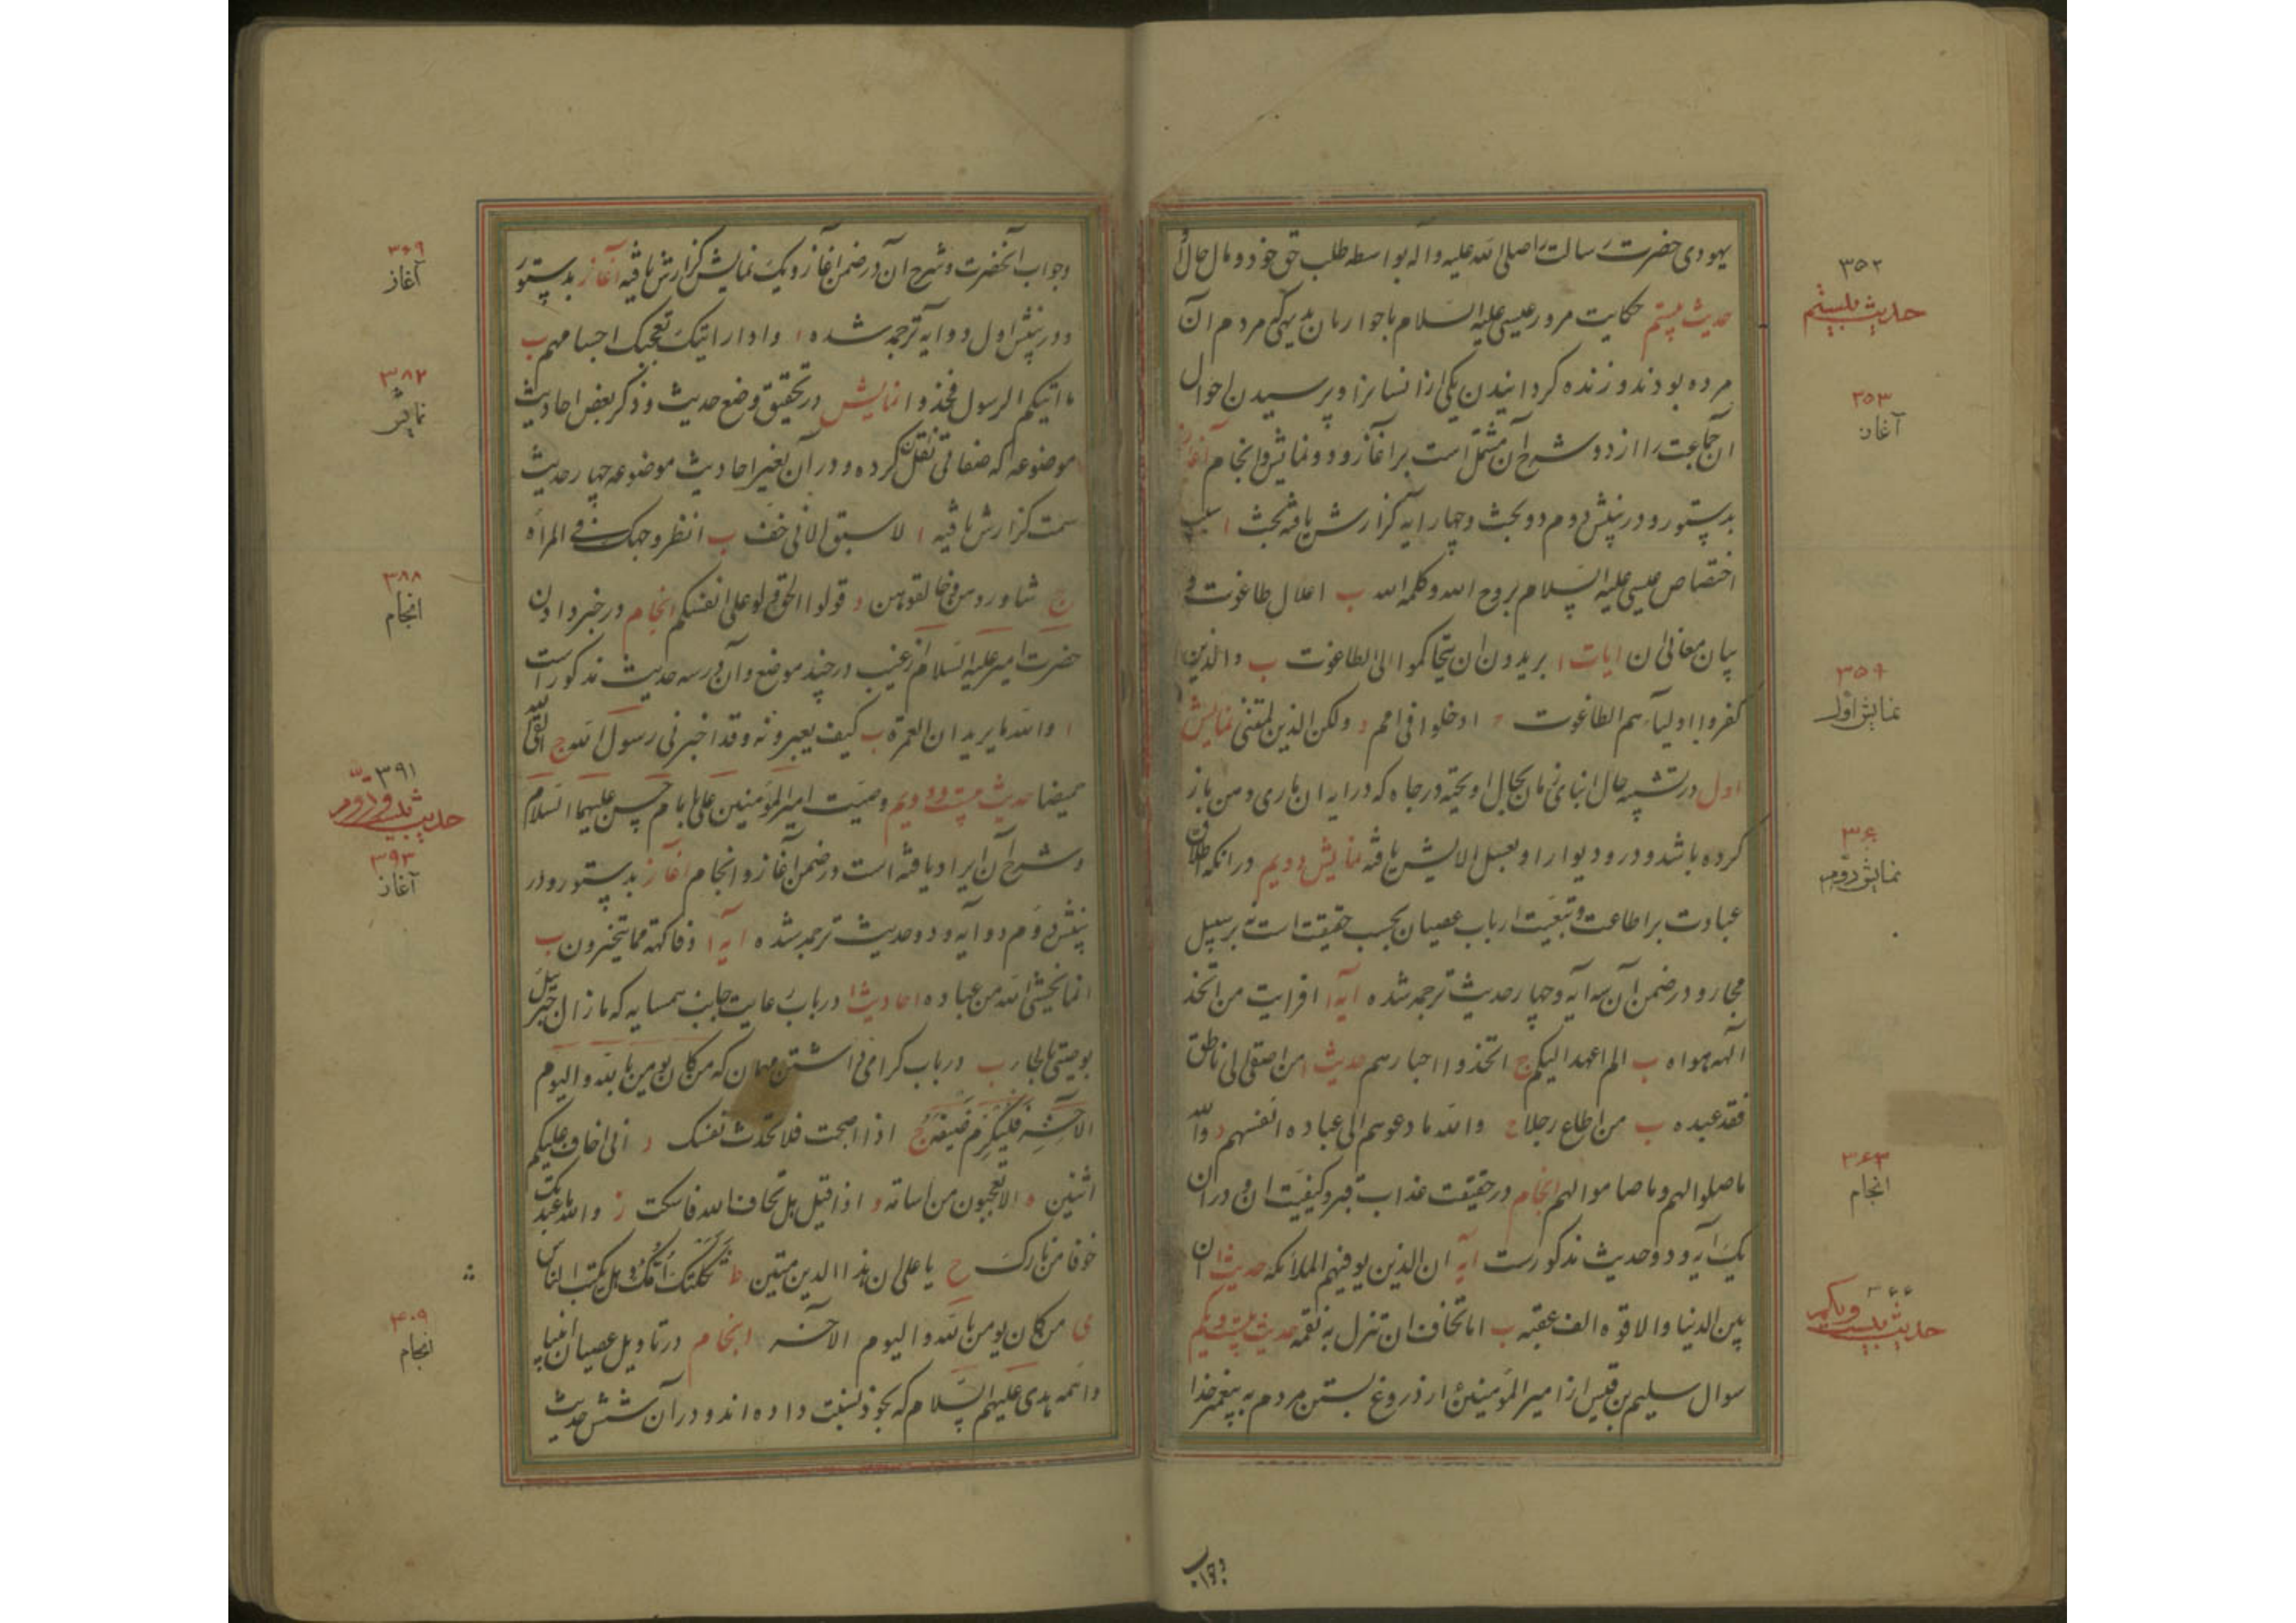 یهودی حضرت رسالت را صلی الله علیه و اله بواسطه طلب حق خود و مال حال او
حدیث بیستم حکایت مرور عیسی علیه السلام با حواریان بدیهی که مردم آن
مرده بودند و زنده کردانیدن یکی از انسانرا و پرسیدن احوال
ان جماعت را از او و شرح آن مشتمل است بر اغاز و دو نمایش و انجام آغاز
بدستور و در بینش دوم دو بحث و چهار ایه کزارش یافته بحث ا سبب
اختصاص عیسی علیه السلام بروح الله و کلمه الله ب اعلال طاغوت و
بیان معانی ان ایات ا یریدون ان یتحاکموا الی الطاغوت ب والذین
کفروا اولیآءهم الطاغوت ج ادخلوا فی امم د ولکن الذین لمتننی نمایش
اول در تشبیه حال ابنای زمان بحال اویخته در چاه که در ایه ان ماری دهن باز
کرده باشد و در و دیوار او بعسل الایش یافته نمایش دویم در انکه اطلاق
عبادت بر اطاعت و تبعیت ارباب عصیان بحسب حقیقت است نه بر سبیل
مجاز و در ضمن آن سه آیه و چهار حدیث ترجمه شده ایه ا افرایت من اتخذ
الهه هواه ب الم اعهد الیکم ج اتخذوا احبارهم حدیث ا من اصغی الی ناطق
فقد عبده ب من اطاع رجلا ج والله ما دعوهم الی عباده انفسهم د والله
ما صلوا لهم و ما صاموا لهم انجام در حقیقت عذاب قبر و کیفیت ان و در ان
یک آیه و دو حدیث مذکورست ایه ان الذین یوفیهم الملائکه حدیث ا ان
بین الدنیا والاخرة الف عقبه ب اما تخاف ان تنزل به نقمه حدیث بیست و یکم
سوال سلیم بن قیس از امیر المؤمنین از دروغ بستن مردم به پیغمبر خدا
و جواب
۳۵۲
حدیث بیستم
۳۵۳
آغاز
۳۵۹
نمایش اول
۳۶۰
نمایش دوم
۳۶۳
انجام
۳۶۶
حدیث بیست و یکم
و جواب آنحضرت و شرح ان در ضمن آغاز و یک نمایش کزارش یافته آغاز بدستور
و در بینش اول دو ایه ترجمه شده ا و اذا رایتهم تعجبک اجسامهم ب
ما اتیکم الرسول فخذوا نمایش در تحقیق وضع حدیث و ذکر بعض احادیث
موضوعه که صغانی نقل کرده و در آن بغیر احادیث موضوعه چهار حدیث
سمت کزارش یافته ا لا سبق الا فی خف ب انظر وجهک فی المراه
ج شاوروهن و خالفوهن د قولوا الحق ولو علی انفسکم انجام در خبر دادن
حضرت امیر علیه السلام از غیب در چند موضع و آن در سه حدیث مذکور است
ا والله ما یریدان العمرة ب کیف یعبرونه و قد اخبرنی رسول الله ج
حدیث بیست و دویم وصیت امیر المؤمنین علی با امام حسن علیهما السلام
و شرح آن ایراد یافته است در ضمن آغاز و انجام آغاز بدستور و در
بینش دوم دو ایه و دو حدیث ترجمه شده ایه ا و فاکهه مما یتخیرون ب
انما یخشی الله من عباده احادیث ا در باب رعایت جانب همسایه که ما زال جبرئیل
یوصینی بالجار ب در باب کرامی داشتن مهمان که من کان یومن بالله و الیوم
الآخر فلیکرم ضیفه ج اذا اصبحت فلا تحدث نفسک د انی اخاف علیکم
اثنین ه الا تعجبون من اسامه و اذا قیل هل تخاف الله فاسکت ز والله ما عبدتک
خوفا من نارک ح یا علی ان هذا الدین متین ط ثکلتک امک و هل یکب الناس
ی من کان یومن بالله و الیوم الاخر انجام در تاویل عصیان انبیا
و ائمه هدی علیهم السلام که بخود نسبت داده اند و در آن شش حدیث
۳۶۹
آغاز
۳۸۲
نمایش
۳۸۸
انجام
۳۹۱
حدیث بیست و دوم
۳۹۳
آغاز
۴۰۹
انجام